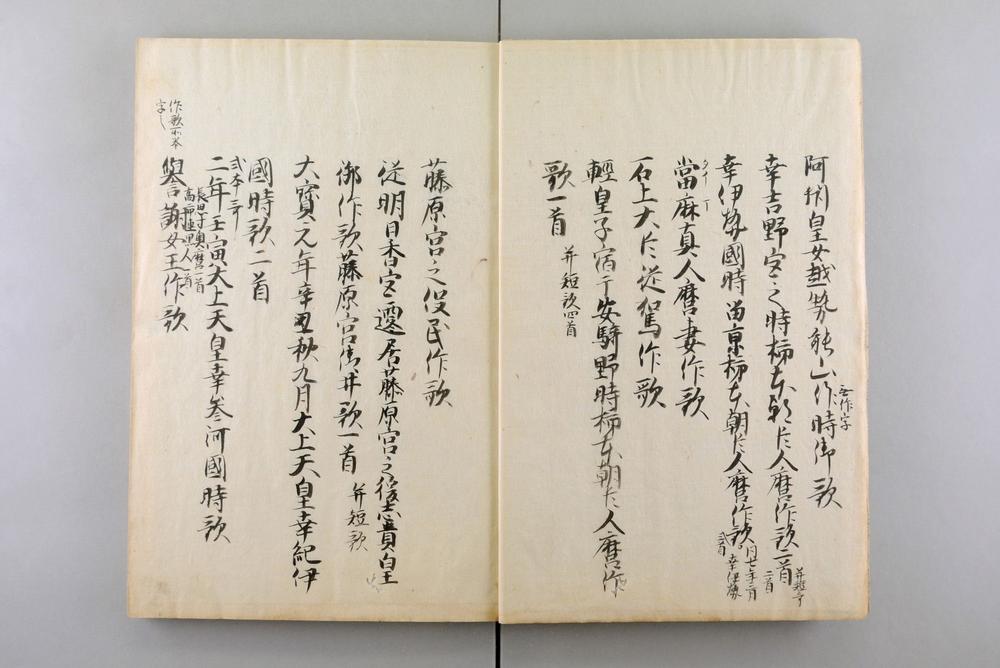 阿閇皇女越勢能山作時御歌
無作字
幸吉野宮之時柿本朝臣人麿作歌二首
并短歌
二首
幸伊勢國時留京柿本朝臣人麿作歌
三首
幸伊勢
當麻真人麿妻作歌
石上大臣從駕作歌
輕皇子宿于安騎野時柿本朝臣人麿作
歌一首
并短歌四首
藤原宮之役民作歌
従明日香宮遷居藤原宮之後志貴皇子
御作歌藤原宮御井歌一首
并短歌
大寳元年辛丑秋九月大上天皇幸紀伊
國時歌二首
二年壬寅大上天皇幸叁河國時歌
長忌寸奥麿一首
高市連黒人一首
與謝女王作歌
作歌